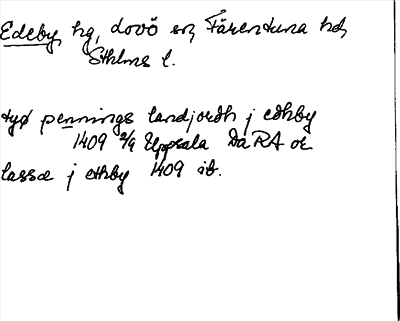 Edeby, hg, Lovö sn, Färentuna hd,
Sthlms l.
tyø pennings landjordh j edhby
1409 2/9 Uppsala Da RA or
lasse j edhby 1409 ib.